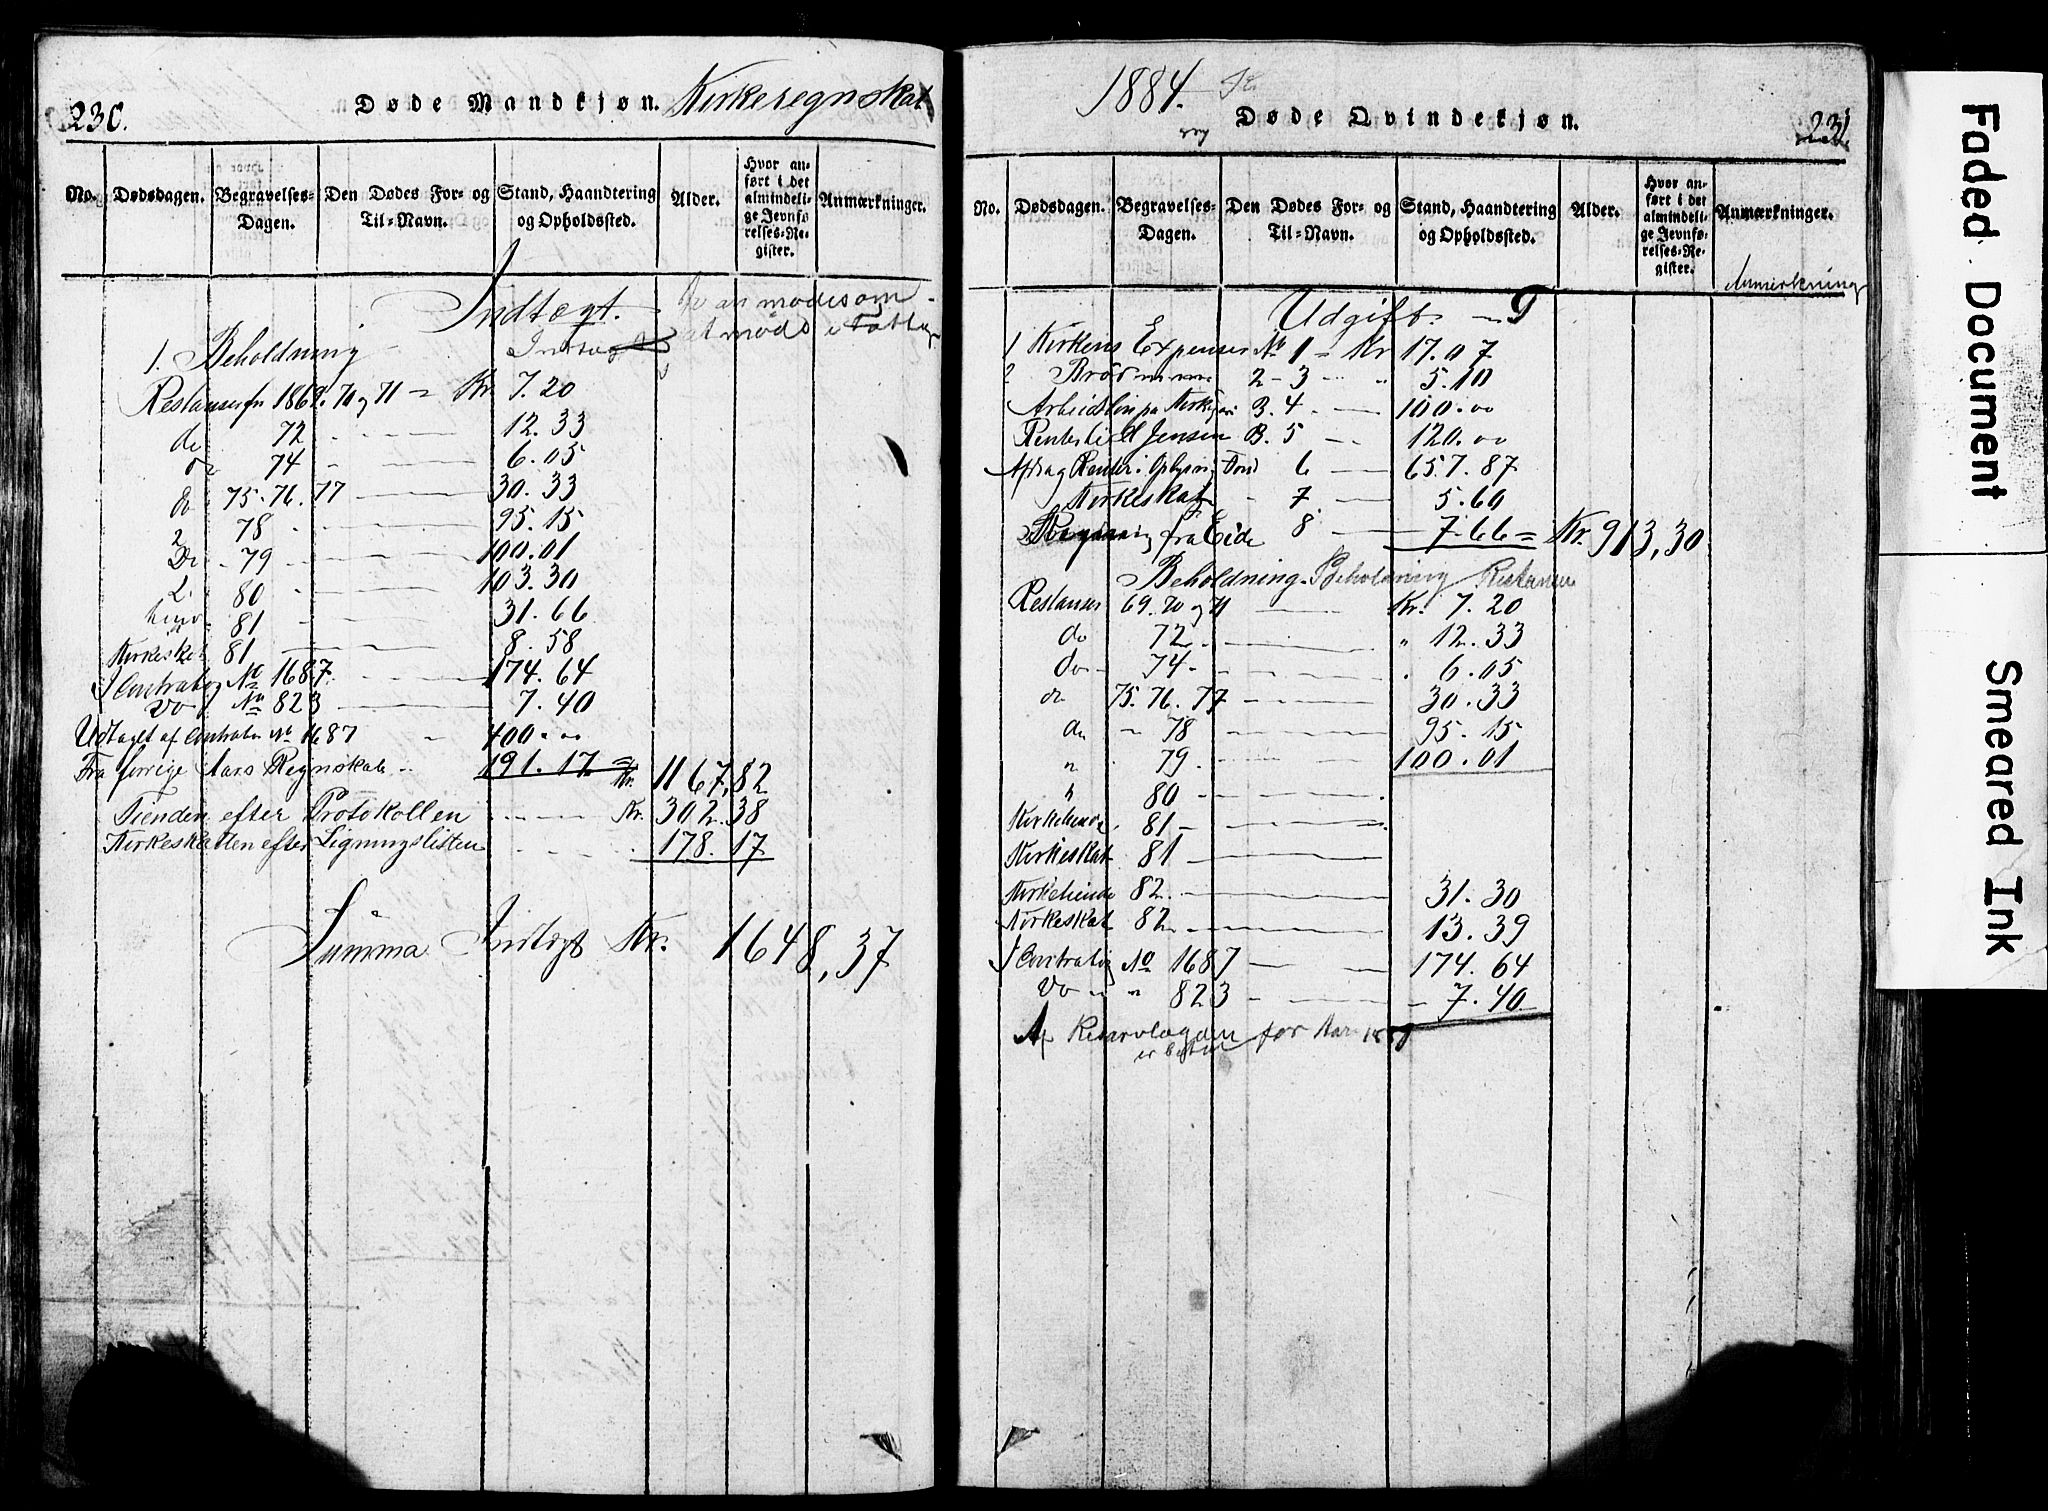 230.
Døde Mandkjøn. Kirkeregnskab
No. Dødsdagen. Begravelses-Dagen. Den Dødes For- og Til-Navn. Stand, Haandtering og Opholdssted. Alder. Hvor anført i det almindelige Jevnførelses-Register. Anmærkninger.
Indtægt.
1. Beholdning
Restanser fr 1869. 70 og 71 = Kr 7.20
do 72 12.33
do 74 6.05
do 75. 76. 77 30.33
78 95.15
Do 79 100.01
80 103.30
81 31.66
Kirkeskat 81 8.58
I Contrabog No 1687 174.64
Do No 823 7.40
Udtaget af Contrabn No 1687 400.00
Fra forrige Aars Regnskab 191.17 = Kr. 1167,82
Tienden efter Protokollen Kr. 302.38
Kirkeskatten efter Ligningslisten 178.17
Summa Indtægt Kr. 1648,37
1884.
Døde Qvindekjøn.
231.
No. Dødsdagen. Begravelses-Dagen. Den Dødes For- og Til-Navn. Stand, Haandtering og Opholdssted. Alder. Hvor anført i det almindelige Jevnførelses-Register. Anmærkninger.
Anmerkning
Udgift
1 Kirkens Expenser No 1 = Kr 17.07
2 2-3 5.10
Arbeidslon pa Kirken B. 4. 100.00
Renter til Jensen B. 5 120.00
Afdrag Renter i Oplysn. Fond 6 657.87
Kirkeskat 7. 5.60
fra Eide 8 7.66 = Kr. 913,30
Beholdning. Beholdning Restanser
Restanser 69. 70 og 71 Kr. 7.20
do 72 " 12.33
do 74 6.05
do 75. 76. 77 30.33
do " 78 95.15
" 79 100.01
" 80
Kirketiende 81
Kirkeskat 81
Kirketiende 82. 31.30
Kirkeskat 82 13.39
I Contrabog No 1687 174.64
Do " " 823 7.40
Af for Aar
Faded Document
Smeared Ink